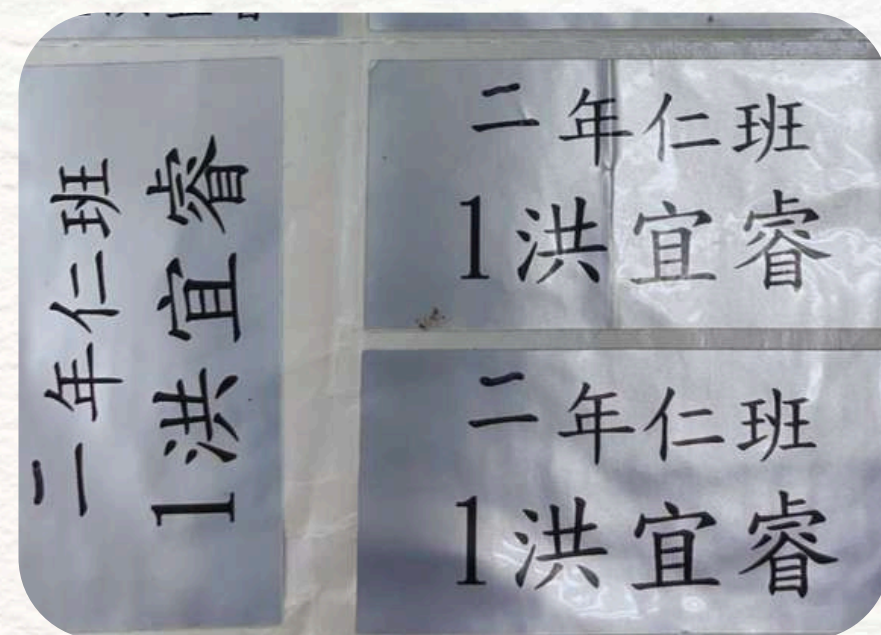 二年仁班
1洪宜睿
二年仁班
1洪宜睿
二年仁班
1洪宜睿